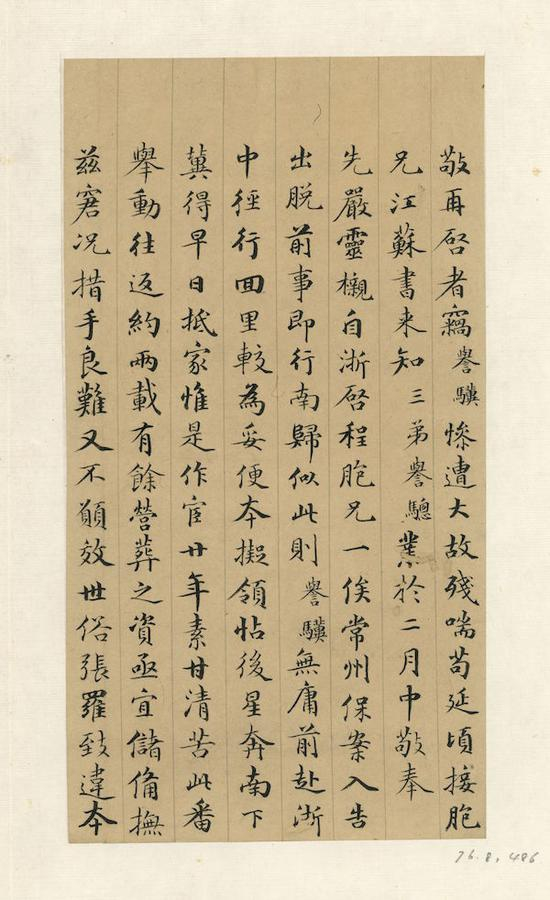 敬再啓者竊譽驥慘遭大故殘喘苟延頃接胞
兄江蘇書来知三弟譽驄業於二月中敬奉
先嚴靈櫬自浙啓程胞兄一俟常州保案入告
出脱前事即行南歸似此則譽驥無庸前赴浙
中徑行回里較為妥便本擬領帖後星奔南下
冀得早日抵家惟是作宦廿年素甘清苦此番
舉動往返約兩載有餘營葬之資亟宜儲備撫
兹窘况措手良難又不願效世俗張羅致違本
76.8.486